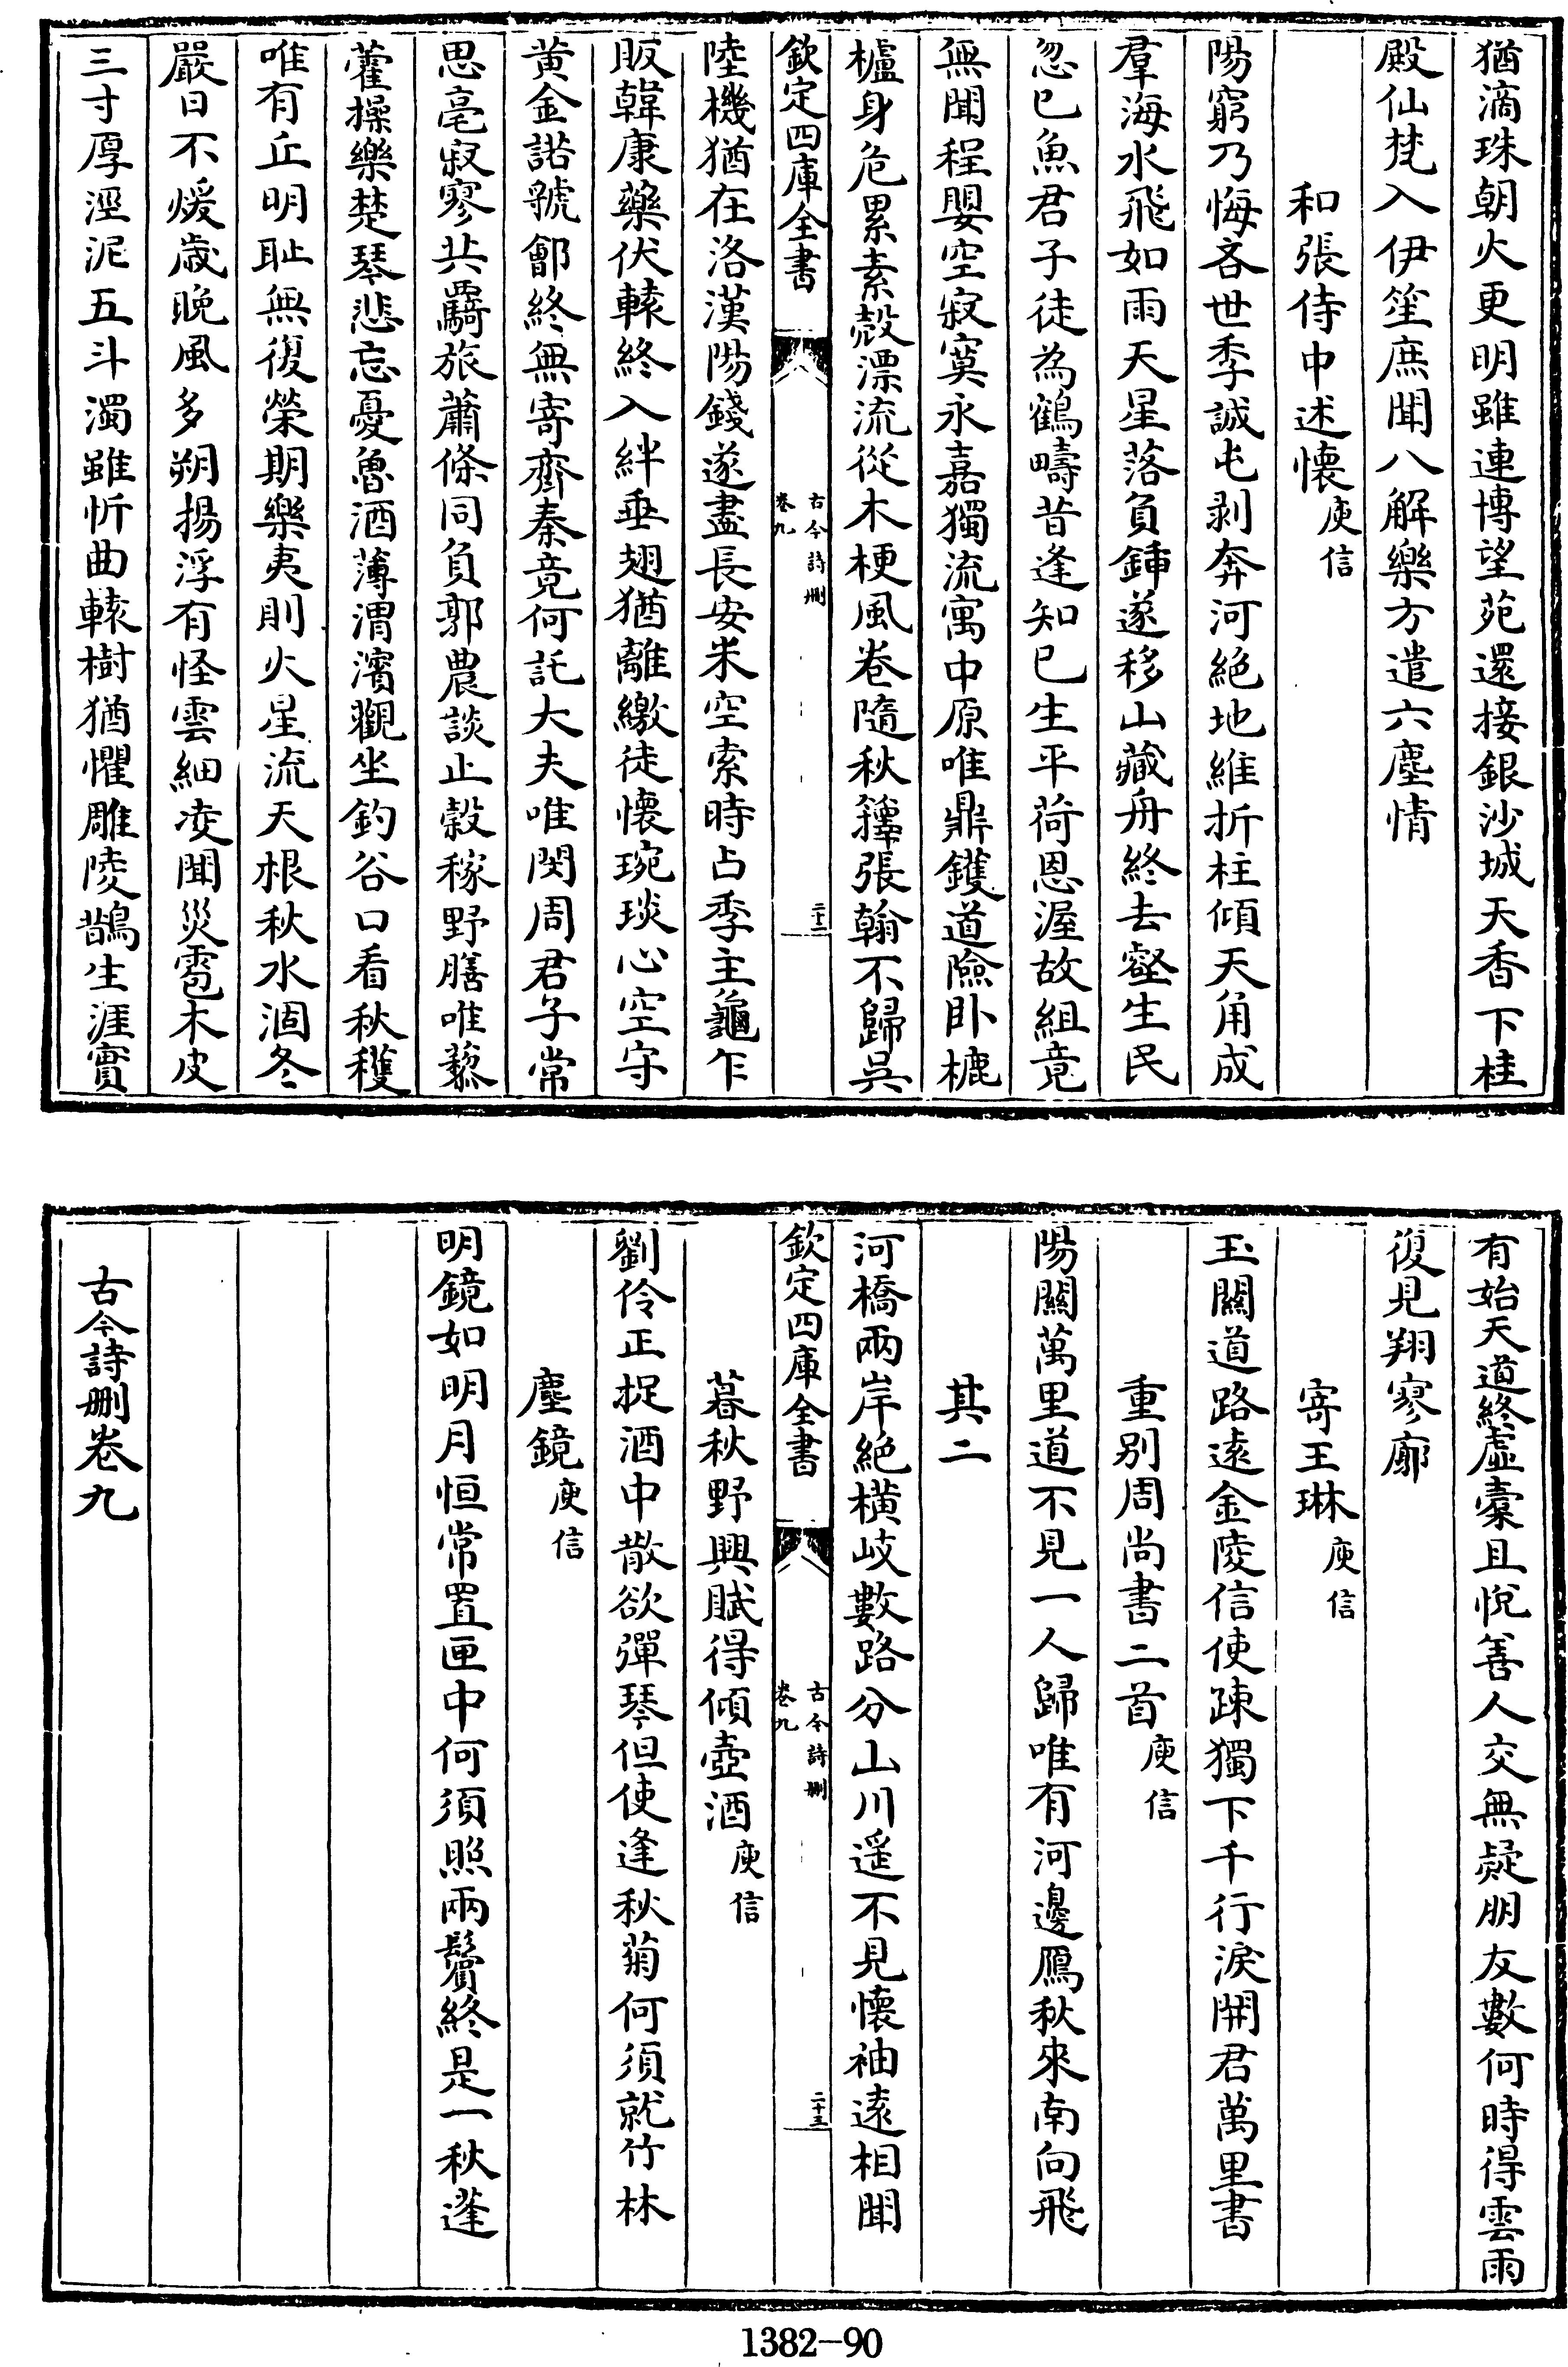 猶滴珠朝火更明雖連博望苑還接銀沙城天香下桂
殿仙梵入伊笙庶聞八解樂方遣六塵情
和張侍中述懷庾信
陽窮乃悔吝世季誠屯剥奔河絶地維折柱傾天角成
羣海水飛如雨天星落負鍤遂移山藏舟終去壑生民
忽已魚君子徒為鶴疇昔逢知已生平荷恩渥故組竟
無聞程嬰空寂寞永嘉獨流寓中原唯鼎鑊道險卧櫖
櫨身危累素殻漂流從木梗風卷隨秋籜張翰不歸吳
欽定四庫全書
古今詩刪
卷九
二十二
陸機猶在洛漢陽錢遂盡長安米空索時占季主龜乍
販韓康藥伏轅終入絆垂翅猶離繳徒懷琬琰心空守
黄金諾虢鄶終無寄齊秦竟何託大夫唯閔周君子常
思亳寂寥共羈旅蕭條同負郭農談止榖稼野膳唯藜
藿操樂楚琴悲忘憂魯酒薄渭濱觀坐釣谷口看秋穫
唯有丘明耻無復榮期樂夷則火星流天根秋水涸冬
嚴日不煖歳晚風多朔揚浮有怪雲細凌聞災雹木皮
三寸厚涇泥五斗濁雖忻曲轅樹猶懼雕陵鵲生涯實
有始天道終虛橐且悅善人交無疑朋友數何時得雲雨
復見翔寥廓
寄王琳庾信
玉關道路遠金陵信使疎獨下千行淚開君萬里書
重别周尚書二首庾信
陽關萬里道不見一人歸唯有河邊鴈秋來南向飛
其二
河橋兩岸絶横岐數路分山川遥不見懷袖遠相聞
欽定四庫全書
古今詩刪
卷九
二十三
暮秋野興賦得傾壺酒庾信
劉伶正捉酒中散欲彈琴但使逢秋菊何須就竹林
塵鏡庾信
明鏡如明月恒常置匣中何須照兩鬢終是一秋蓬
古今詩刪卷九
1382-90